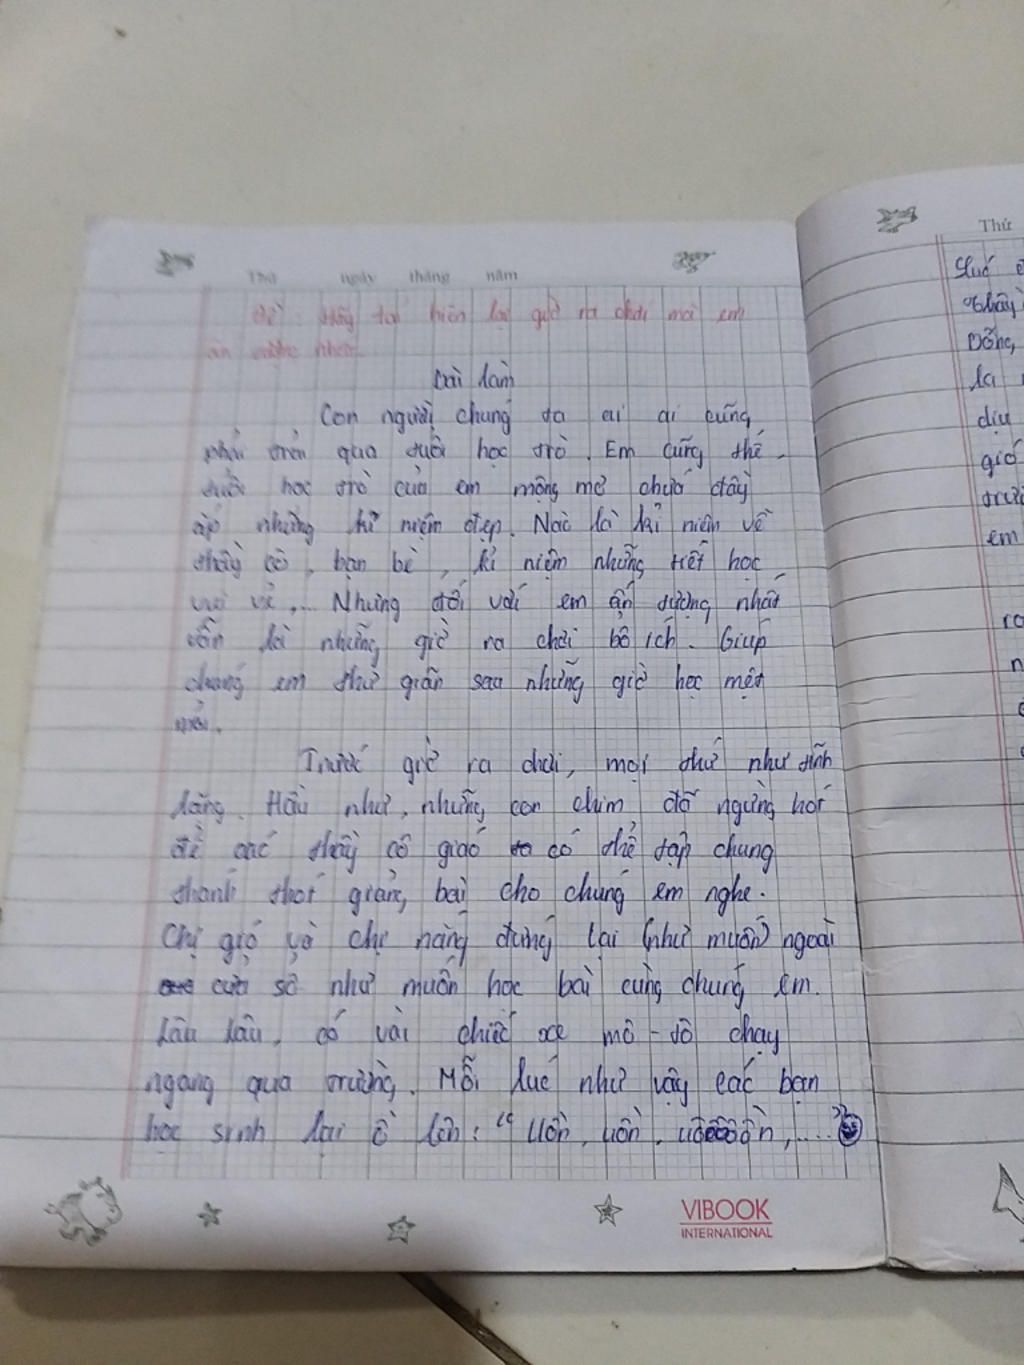 Thứ ngày tháng năm
Đề: Hãy tái hiện lại giờ ra chơi mà em
ấn tượng nhất.
Bài làm
Con người chúng ta ai ai cũng
phải trải qua tuổi học trò. Em cũng thế.
tuổi học trò của em mộng mơ chứa đầy
ắp những kỉ niệm đẹp. Nào là kỉ niệm về
thầy cô, bạn bè, kỉ niệm những tiết học
vui vẻ,... Nhưng đối với em ấn tượng nhất
vẫn là những giờ ra chơi bổ ích. Giúp
chúng em thư giãn sau những giờ học mệt
mỏi.
Trước giờ ra chơi, mọi thứ như tĩnh
lặng. Hầu như, những con chim đã ngừng hót
để các thầy cô giáo có thể tập chung
thánh thót giảng bài cho chúng em nghe.
Chị gió và chị nắng đứng lại (như muốn) ngoài
cửa sổ như muốn học bài cùng chúng em.
Lâu lâu, có vài chiếc xe mô-tô chạy
ngang qua trường. Mỗi lúc như vậy các bạn
học sinh lại ồ lên: "Uồn, uồn, uồôôôồn,...."
VIBOOK
INTERNATIONAL
Thứ
Lúc
thầy
Đông,
la
dịu
gió
em